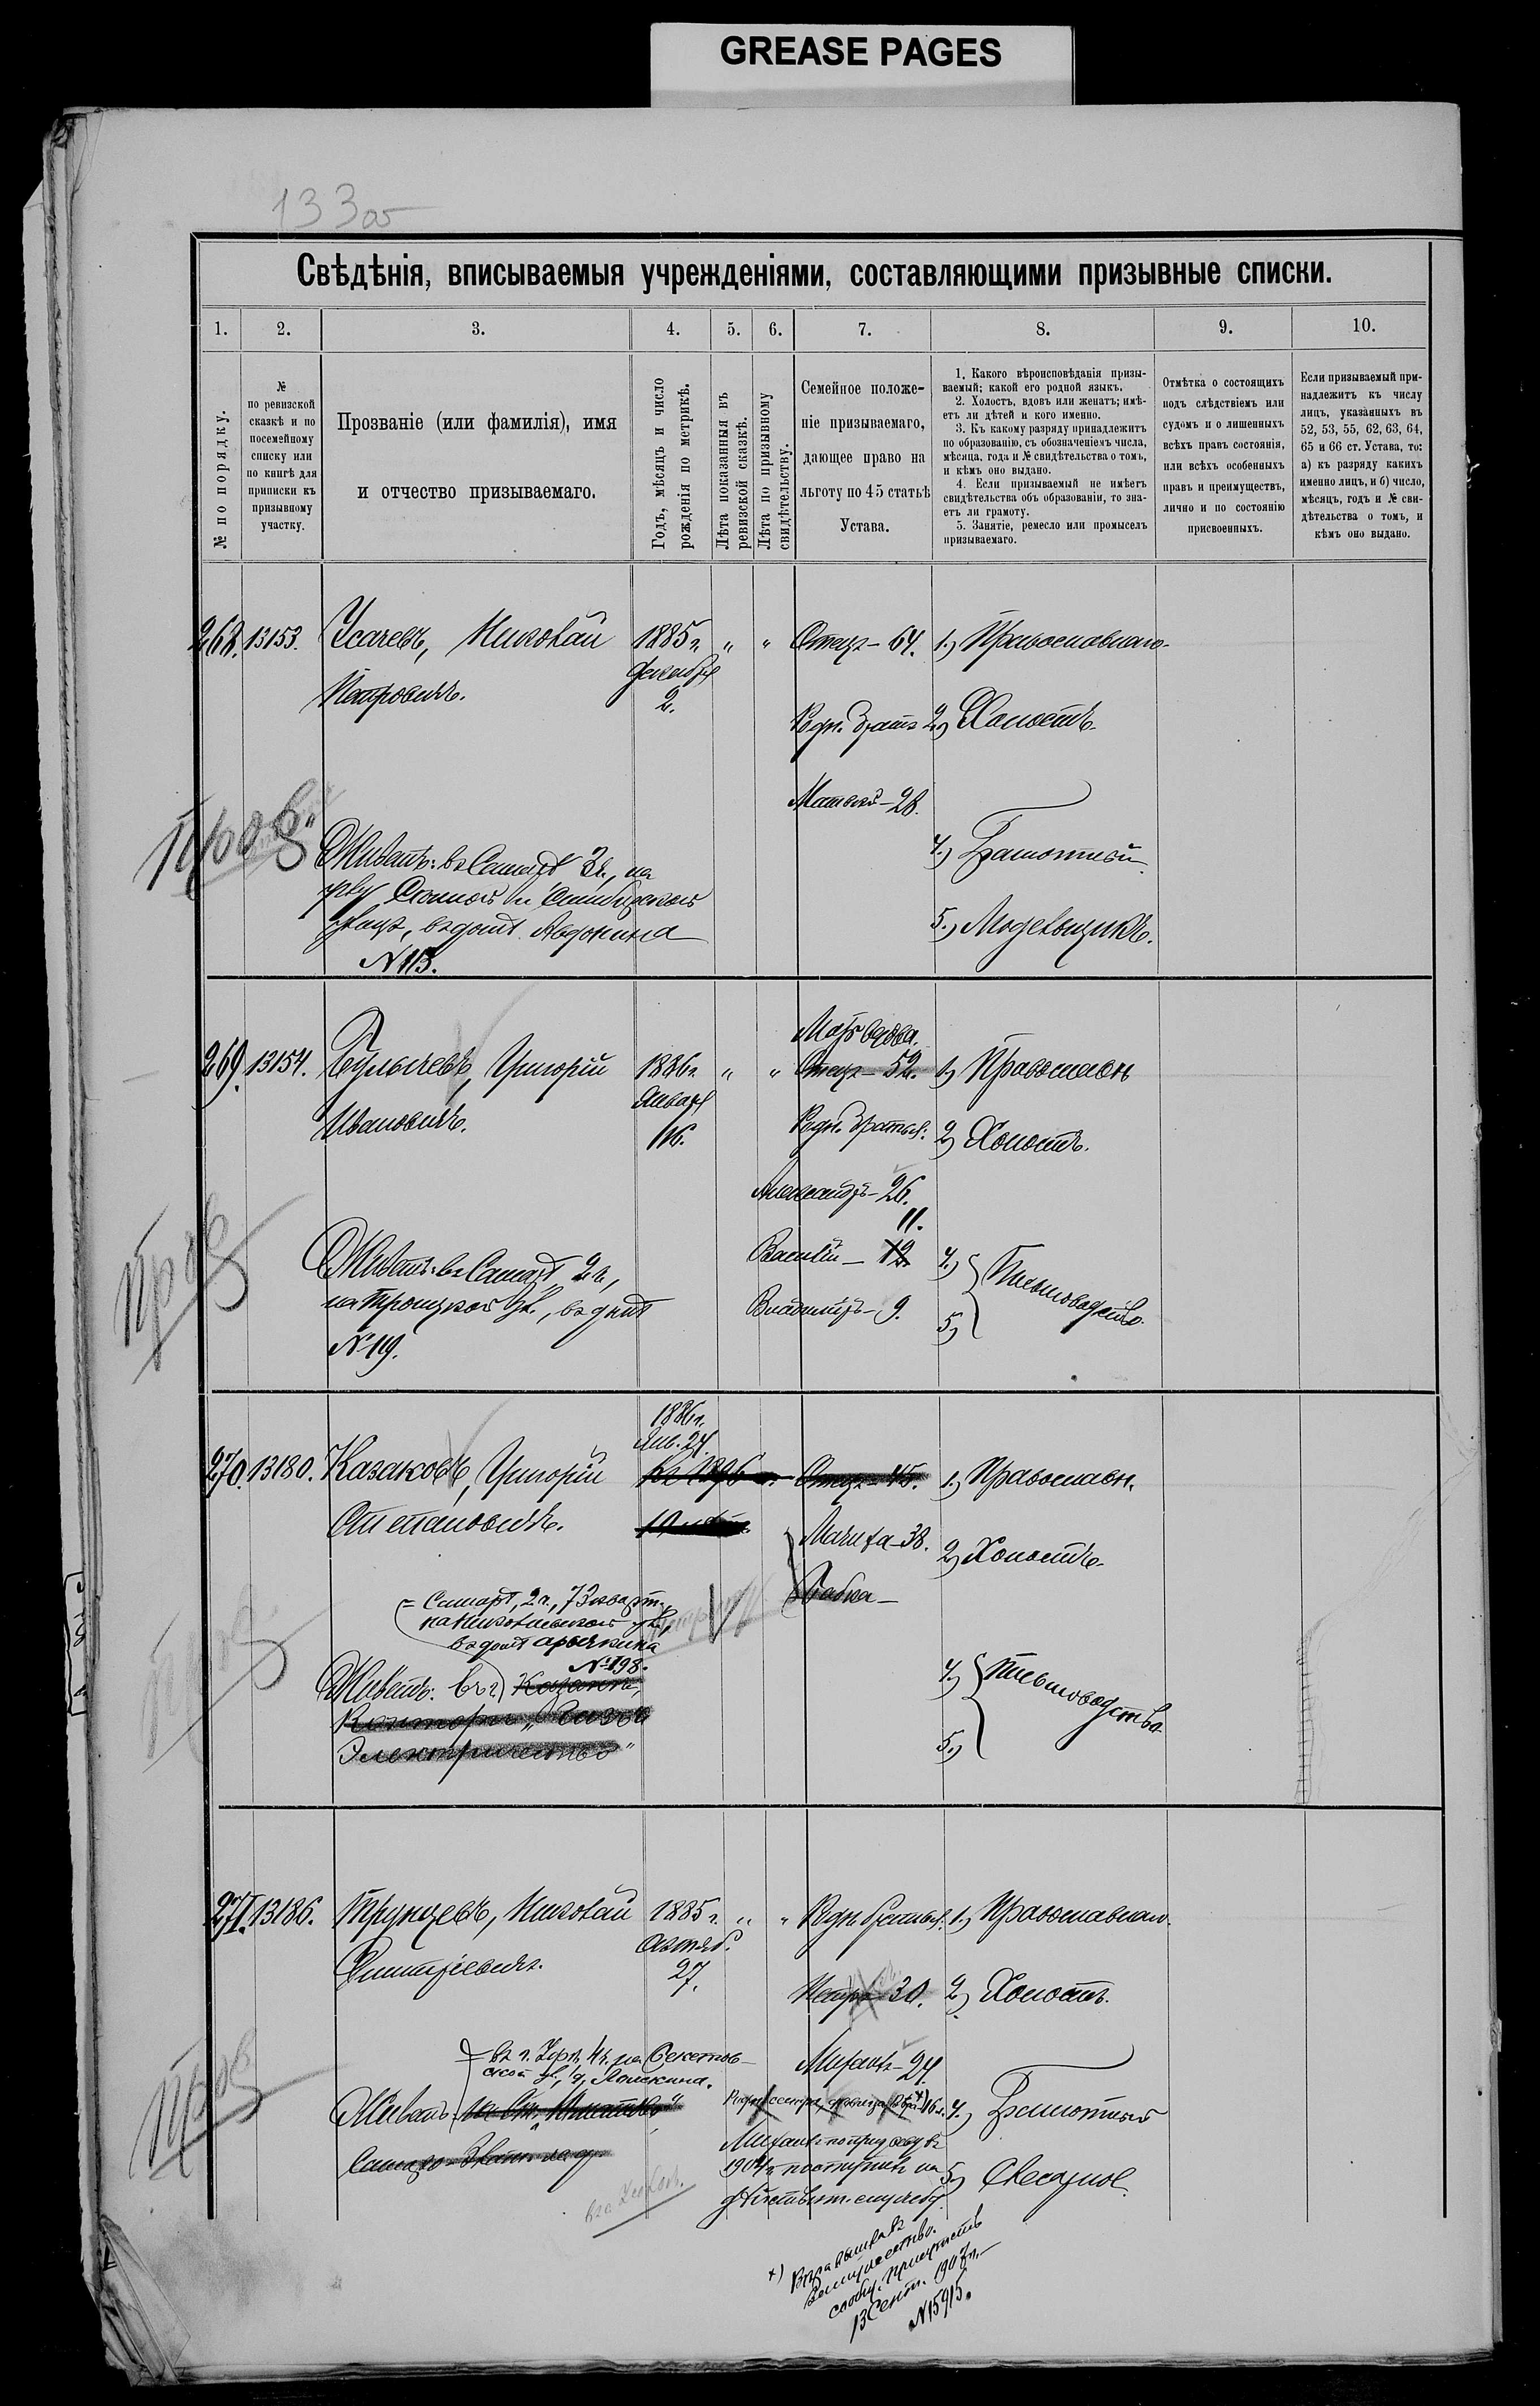 GREASE PAGES
133 об
Свѣдѣнія, вписываемыя учрежденіями, составляющими призывные списки.
1. 2. 3. 4. 5. 6. 7. 8. 9. 10.
№ по порядку.
№
по ревизской
сказкѣ и по
посемейному
списку или
по книгѣ для
приписки къ
призывному
участку.
Прозваніе (или фамилія), имя
и отчество призываемаго.
Годъ, мѣсяцъ и число
рожденія по метрикѣ.
Лѣта показанныя въ
ревизской сказкѣ.
Лѣта по призывному
свидѣтельству.
Семейное положе-
ніе призываемаго,
дающее право на
льготу по 45 статьѣ
Устава.
1. Какого вѣроисповѣданія призы-
ваемый; какой его родной языкъ.
2. Холостъ, вдовъ или женатъ; имѣ-
етъ ли дѣтей и кого именно.
3. Къ какому разряду принадлежитъ
по образованію, съ обозначеніемъ числа,
мѣсяца, года и № свидѣтельства о томъ,
и кѣмъ оно выдано.
4. Если призываемый не имѣетъ
свидѣтельства объ образованіи, то зна-
етъ ли грамоту.
5. Занятіе, ремесло или промыселъ
призываемаго.
Отмѣтка о состоящихъ
подъ слѣдствіемъ или
судомъ и о лишенныхъ
всѣхъ правъ состоянія,
или всѣхъ особенныхъ
правъ и преимуществъ,
лично и по состоянію
присвоенныхъ.
Если призываемый при-
надлежитъ къ числу
лицъ, указанныхъ въ
52, 53, 55, 62, 63, 64,
65 и 66 ст. Устава, то:
а) къ разряду какихъ
именно лицъ, и б) число,
мѣсяцъ, годъ и № сви-
дѣтельства о томъ, и
кѣмъ оно выдано.
268. 13153. Усачевъ, Николай 1885 г. " " Отецъ – 64. 1.) Православнаго.
Петровичъ. Декабря
2.
Родн. братъ 2.) Холостъ.
Матвей – 28.
Пров.
4.) Грамотный.
Живетъ: въ Самарѣ 3 ч., на
углу Сѣнной и Симбирской
улицъ, въ домѣ Авдокина
N 113.
5.) Модельщикъ.
Мать вдова.
269. 13154. Булычевъ, Григорій 1886 г. " " Отецъ – 52. 1.) Православн
Ивановичъ. Января
16.
Родн. братья: 2) Холостъ.
Александръ – 26.
11.
Василій – 12. 4.)
Пров
Живетъ: въ Самарѣ, 2 ч.,
на Троицкой ул., въ домѣ
N 119.
Владиміръ – 9. 5) Письмоводство.
1886 г.
Янв. 24.
270. 13180. Казаковъ, Григорій Отецъ – 45. 1.) Православн.
Степановичъ.
Мачиха – 38. 2) Холостъ.
Бабка –
Самарѣ, 2 ч., 73 кварт.
на Николаевской ул.,
въ домѣ
N 198.
Живетъ: въ г. Казани,
Контора
Электричество"
Пров
4.) Письмоводство.
5.)
271. 13186. Трунцевъ, Николай 1885 г. " " Родн. братья: 1.) Православнаго.
Димитріевичъ. Октяб.
27.
Петръ – 30. 2) Холостъ.
Михаилъ – 24.
въ г. Уфѣ, 4 ч. на
ской ул.,
Живетъ: на ст.
Пров
Родн. сестра, 16 л. 4.) Грамотный
Михаилъ по
1904 г. поступилъ на 5) Слесарное.
дѣйствит. службу.
х)
13 Сент. 1907 г.
N 15915.